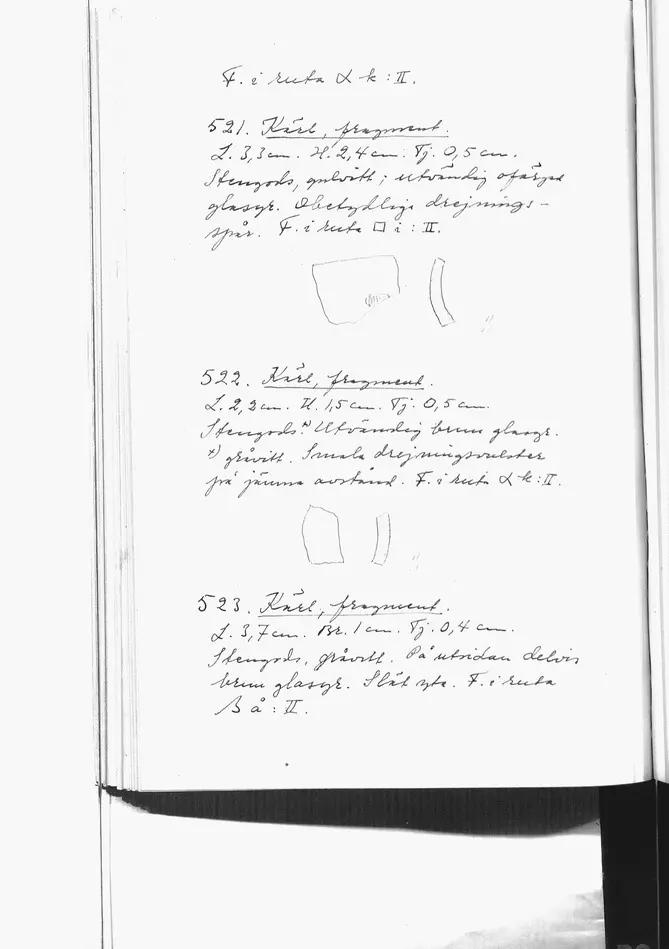 F. i ruta α k : II.
521. Kärl, fragment.
L. 3,3 cm. H. 2,4 cm. Tj. 0,5 cm.
Stengods, gulvitt; utvändig ofärgad
glasyr. Obetydliga drejnings-
spår. F. i ruta □ i : II.
522. Kärl, fragment.
L. 2,2 cm. H. 1,5 cm. Tj. 0,5 cm.
Stengods.+) Utvändig brun glasyr.
+) gråvitt. Smala drejningsvulster
på jämna avstånd. F. i ruta α k : II.
523. Kärl, fragment.
L. 3,7 cm. Br. 1 cm. Tj. 0,4 cm.
Stengods, gråvitt. På utsidan delvis
brun glasyr. Slät yta. F. i ruta
β å : II.